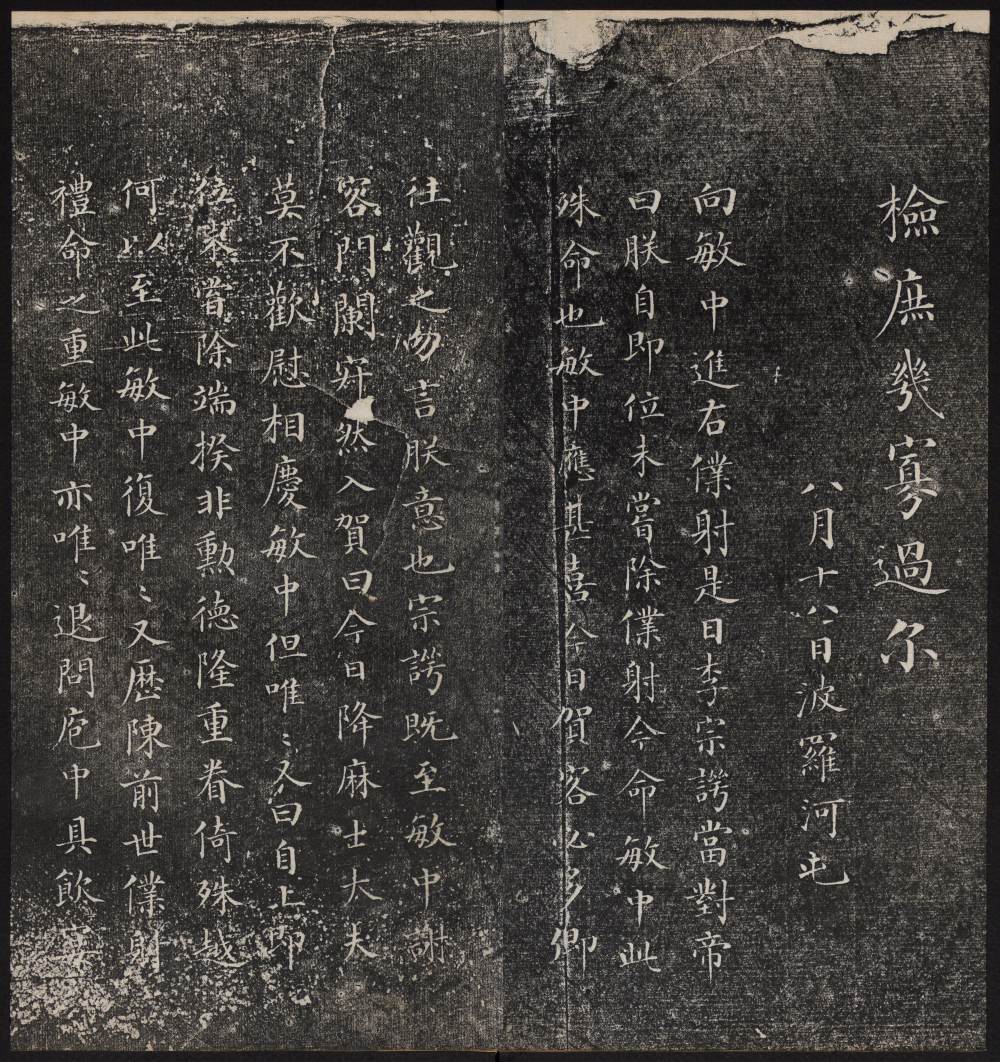 檢庶幾寡過尔
八月十八日波羅河屯
向敏中進右僕射是日李宗諤當對帝
曰朕自即位未嘗除僕射今命敏中此
殊命也敏中應甚喜今日賀客必多卿
往觀之勿言朕意也宗諤既至敏中謝
客門闌寂然入賀曰今日降麻士大夫
莫不歡慰相慶敏中但唯〻又曰自上即
位未嘗除端揆非勲德隆重眷倚殊越
何以至此敏中復唯〻又歷陳前世僕射
禮命之重敏中亦唯〻退問庖中具飲宴